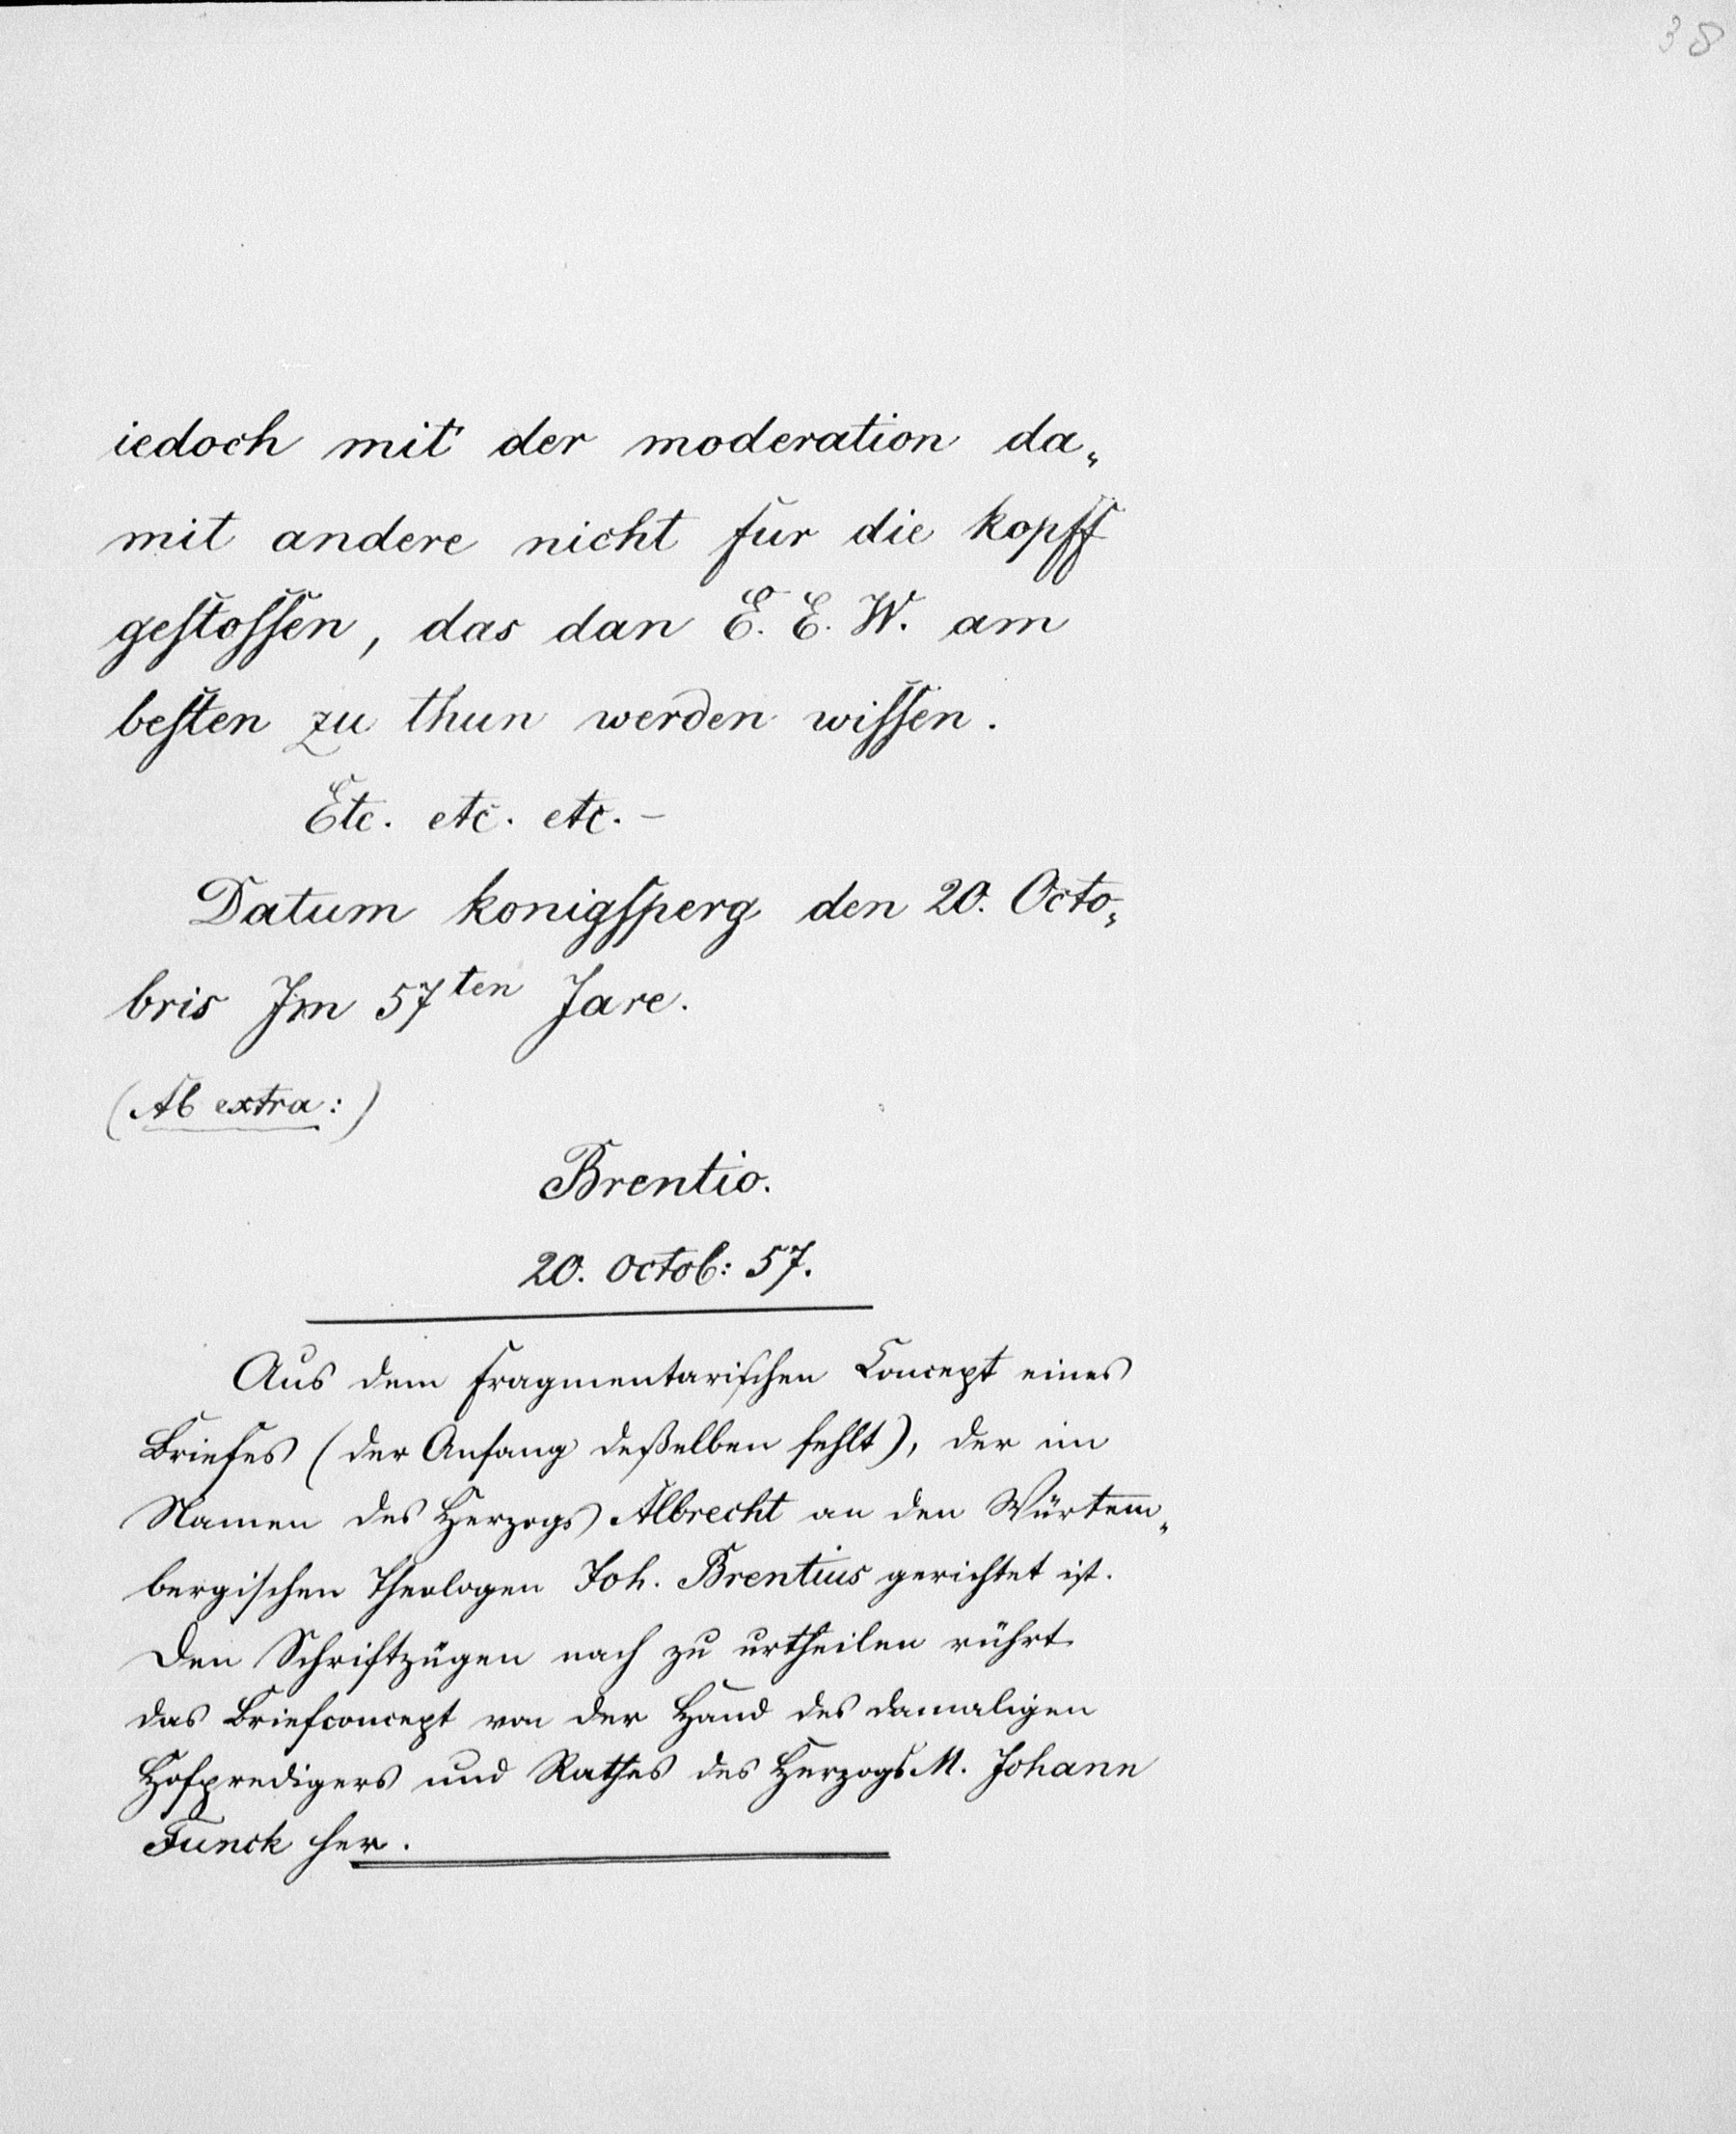 38
iedoch mit der moderation da„
mit andere nicht fur die kopff
geſtoſſen, das dan E. E. W. am
beſten zu thun werden wiſſen.
Etc. etc. etc. –
Datum konigſperg den 20. Octo„
bris Im 57ten Jare.
(Ab extra:)
Brentio.
20. Octob: 57.
Aus dem fragmentariſchen Concept eines
Briefes (der Anfang deßelben fehlt), der im
Namen des Herzogs Albrecht an den Würtem„
bergiſchen Theologen Joh. Brentius gerichtet iſt.
Den Schriftzügen nach zu urtheilen rührt
das Briefconcept von der Hand des damaligen
Hofpredigers und Rathes des Herzogs M. Johann
Funck her.